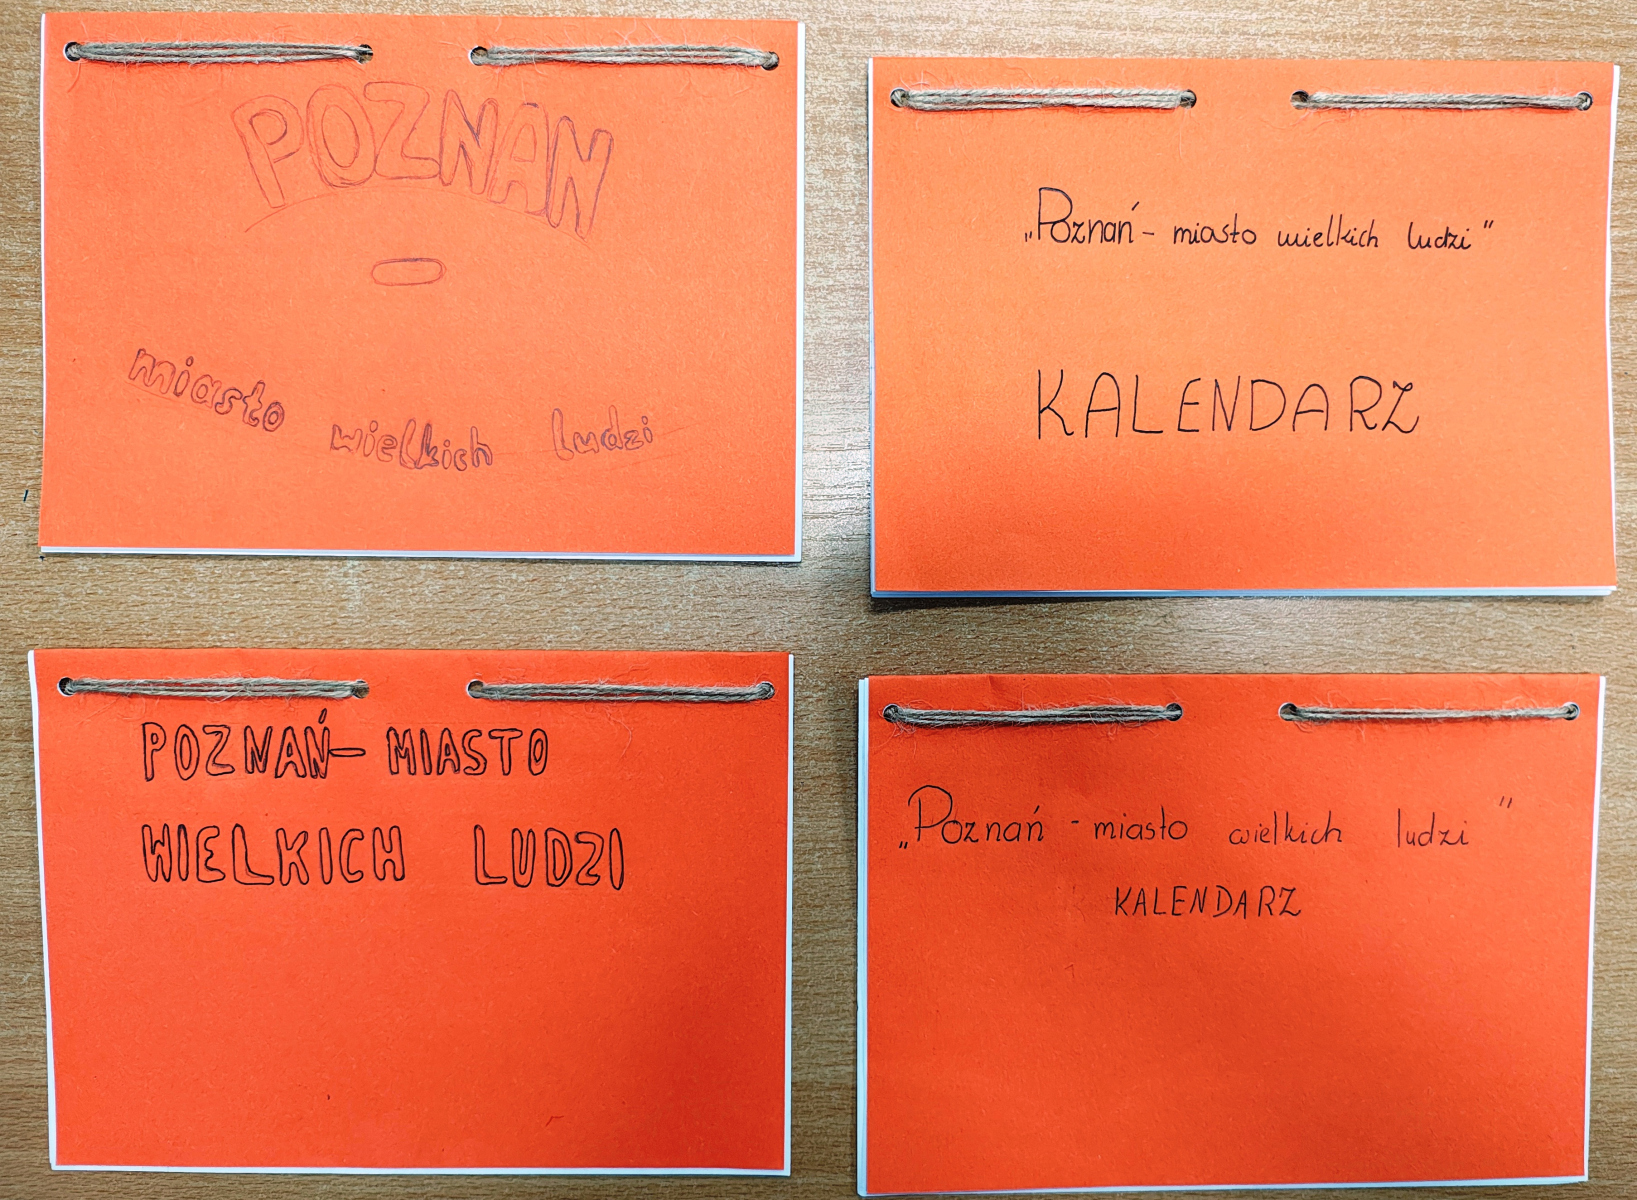 POZNAN
-
miasto wielkich ludzi
„Poznań - miasto wielkich ludzi"
KALENDARZ
POZNAŃ- MIASTO
WIELKICH LUDZI
„Poznań - miasto wielkich ludzi"
KALENDARZ